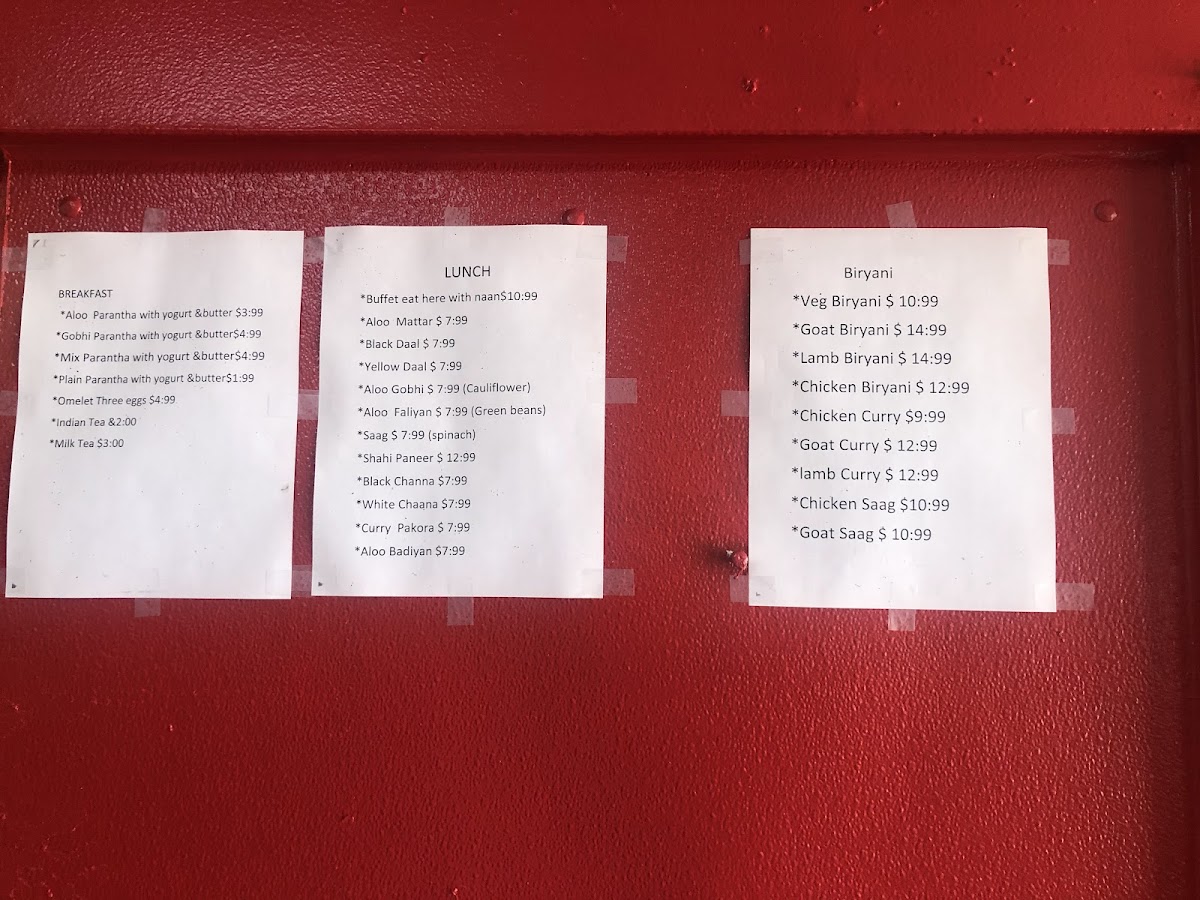 BREAKFAST
*Aloo Parantha with yogurt &butter $3:99
*Gobhi Parantha with yogurt &butter$4:99
*Mix Parantha with yogurt &butter$4:99
*Plain Parantha with yogurt &butter$1:99
*Omelet Three eggs $4:99
*Indian Tea &2:00
*Milk Tea $3:00
LUNCH
*Buffet eat here with naan$10:99
*Aloo Mattar $ 7:99
*Black Daal $ 7:99
*Yellow Daal $ 7:99
*Aloo Gobhi $ 7:99 (Cauliflower)
*Aloo Faliyan $ 7:99 (Green beans)
*Saag $ 7:99 (spinach)
*Shahi Paneer $ 12:99
*Black Channa $7:99
*White Chaana $7:99
*Curry Pakora $ 7:99
*Aloo Badiyan $7:99
Biryani
*Veg Biryani $ 10:99
*Goat Biryani $ 14:99
*Lamb Biryani $ 14:99
*Chicken Biryani $ 12:99
*Chicken Curry $9:99
*Goat Curry $ 12:99
*lamb Curry $ 12:99
*Chicken Saag $10:99
*Goat Saag $ 10:99